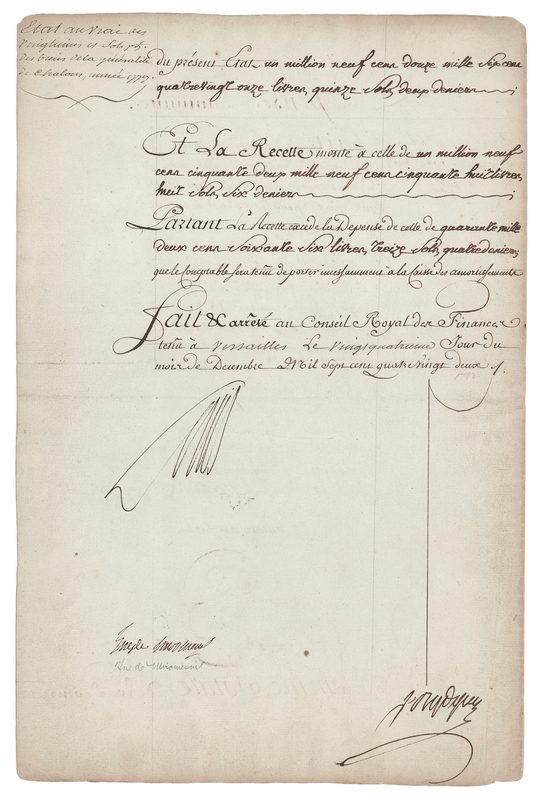 Etat au vrai des
Vingtiemes et sols p. lb.
des biens de la généralité
de Chalons, année 1779.
du présent Etat un million neuf cent douze mille six cent
quatrevingt onze livres, quinze sols, deux deniers
Et La Recette monte à celle de un million neuf
cent cinquante deux mille neuf cent cinquante huit livres,
huit sols, six deniers
Partant La Recette excede la Depense de celle de quarante mille
deux cent soixante six livres, treize sols, quatre deniers,
que le Comptable sera tenu de porter incessamment à la Caisse des amortissements
Fait & arrêté au Conseil Royal des Finances
tenu à Versailles Le vingtquatrieme Jour du
mois de Decembre Mil sept cent quatrevingt deux
1782
Hue de Miromesnil
Hue de Miromesnil